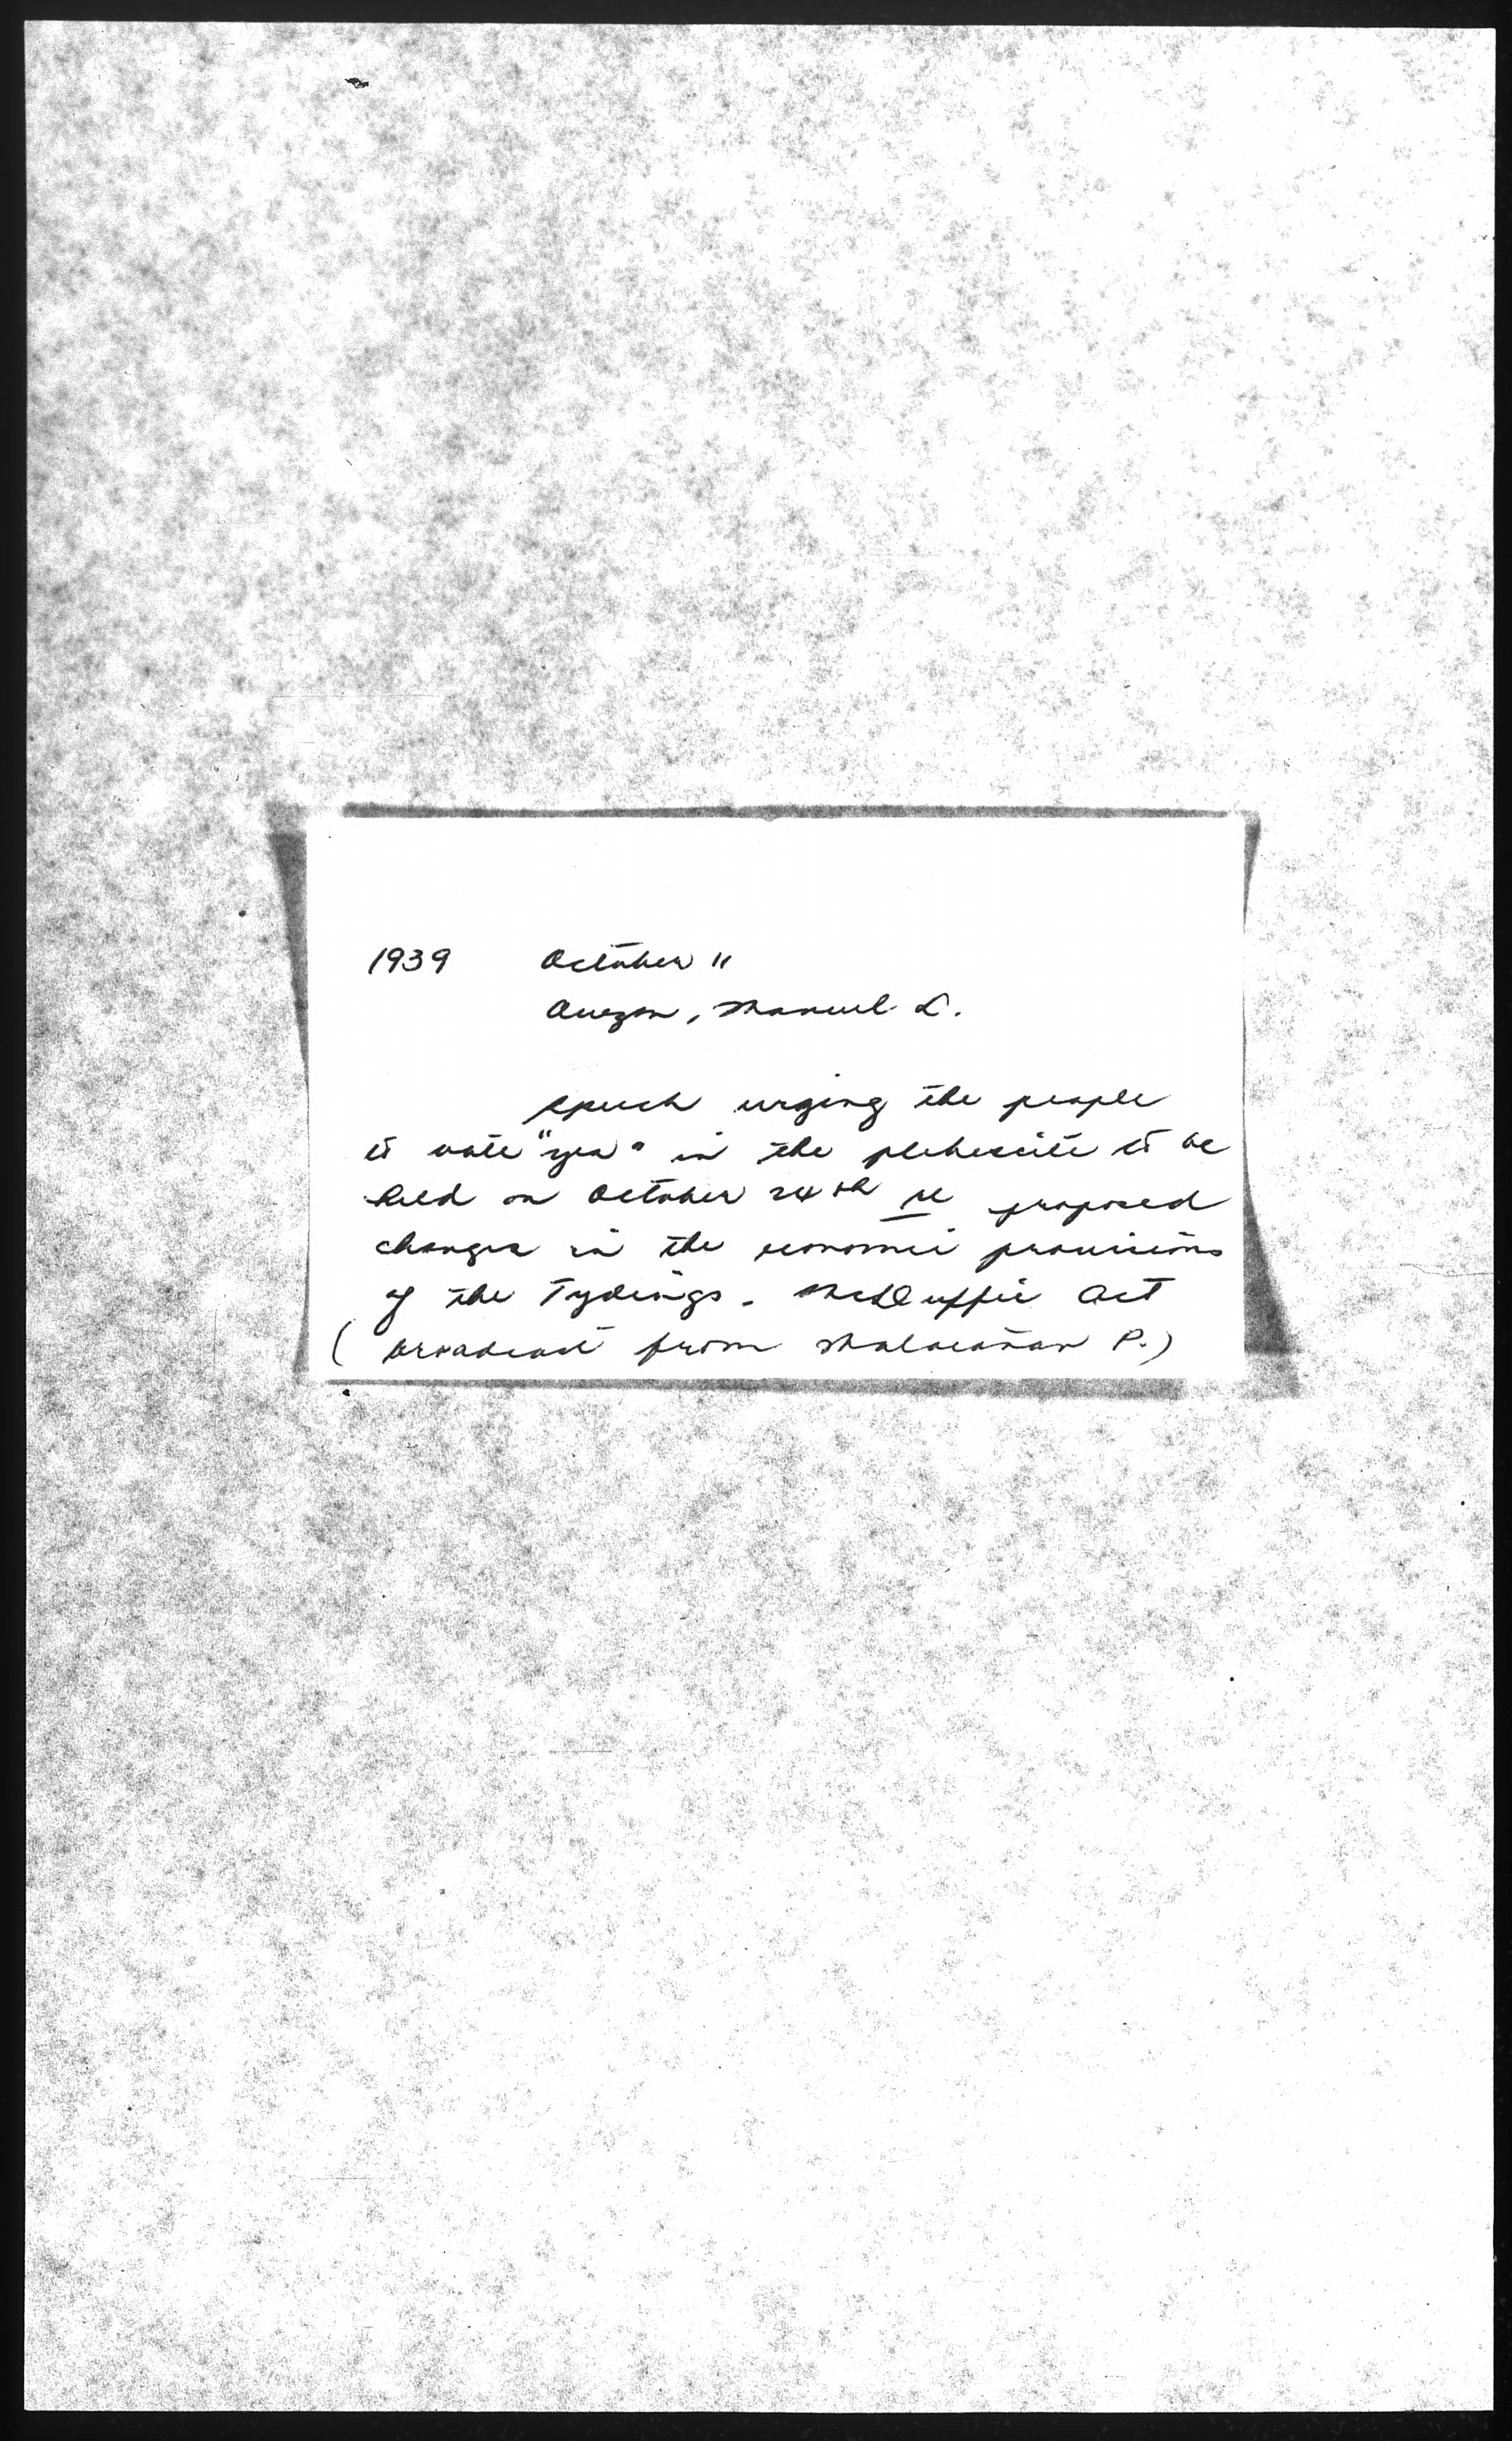 1939 October 11
Quezon, Manuel L.
speech urging the people
to vote "yes" in the plebescite to be
held on October 24th re proposed
changes in the economic provisions
of the Tydings - McDuffie Act
(broadcast from Malacañan P.)